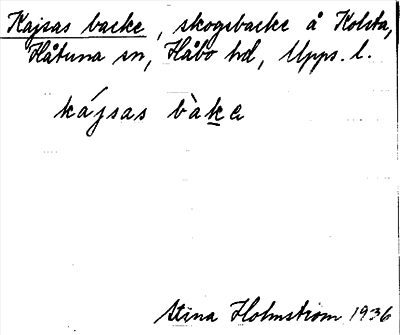 Kajsas backe, skogsbacke å Kolsta,
Håtuna sn, Håbo hd, Upps. l.
kájsas bàke
Stina Holmström 1936